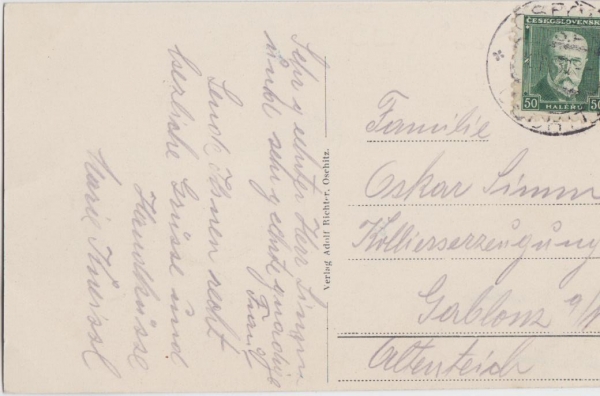 Sehr geehrter Herr
sehr geehrte gnädige
Frau!
Sende Ihnen recht
herzliche Grüsse und
Handküsse
Marie
Verlag Adolf Richter, Oschitz.
ČESKOSLOVENSK
50
HALÉŘŮ
Familie
Oskar Simm
Kollierserzeugung
Gablonz a/N
Altenteich